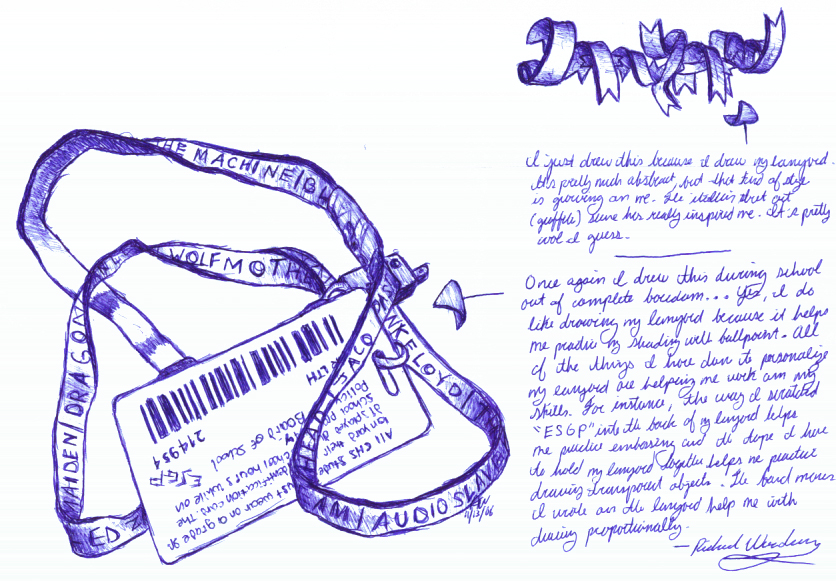 Lanyard
I just drew this because I draw my lanyard.
It's pretty much abstract, but that kind of style
is growing on me. The italian street art
(graffiti) scene has really inspired me. It's pretty
cool I guess.
Once again I drew this during school
out of complete boredom... Yes, I do
like drawing my lanyard because it helps
me practice my shading with ballpoint. All
of the things I have don to personalize
my lanyard are helping me work on my
skills. For instance, the way I scratched
"ESGP" into the back of my lanyard helps
me practice embossing and the tape I have
to hold my lanyard together helps me practice
drawing transparent objects. The band names
I wrote on the lanyard help me with
drawing proportionally.
— Richard
THE MACHINE/BL
WOLFMOTH
MAIDEN/DRAGON
ED
AM/AUDIOSLAVE
NK FLOYD/TH
HEAD/ISACO
214954
ESGP
All CHS stude
school
Policy
Board of School
ust wear on a grade sp
identification card. The
chool hours while on
10/12/06